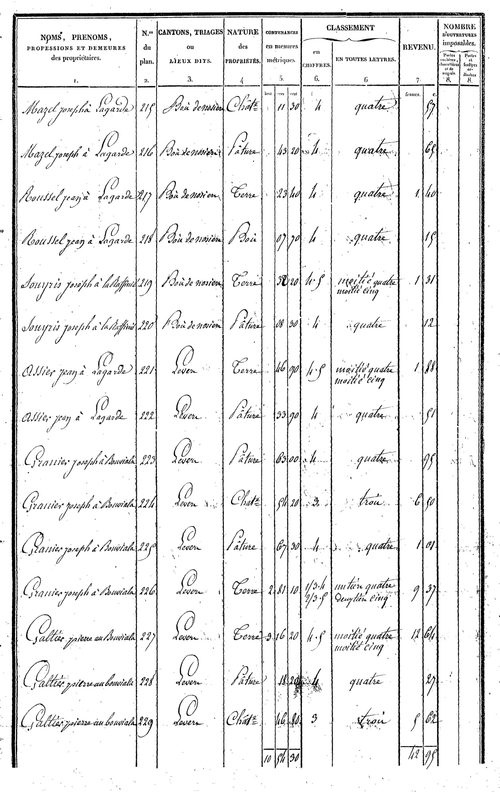 NOMS, PRENOMS, PROFESSIONS ET DEMEURES des propriétaires. 1.
N.os du plan. 2.
CANTONS, TRIAGES ou LIEUX DITS. 3.
NATURE des PROPRIÉTÉS. 4.
CONTENANCES en mesures métriques. 5.
CLASSEMENT
en CHIFFRES. 6.
EN TOUTES LETTRES. 6
REVENU. 7.
NOMBRE D'OUVERTURES imposables.
8. 8.
francs. c.
Mazel joseph à Lagarde 215 Bois de nosien Chât.e 11 30 4 quatre 57
Mazel joseph à Lagarde 216 Bois de nosien Pâture 43 20 4 quatre 65
Roussel jean à Lagarde 217 Bois de nosien Terre 23 40 4 quatre 1 40
Roussel jean à Lagarde 218 Bois de nosien Bois 07 70 4 quatre 15
Souyris joseph à la 219 Bois de nosien Terre 20 4-5 moitié quatre 1 31
moitié cinq
Souyris joseph à la 220 Bois de nosien Pâture 08 30 4 quatre 12
Assier jean à Lagarde 221 Leven Terre 46 90 4-5 moitié quatre 1 88
moitié cinq
Assier jean à Lagarde 222 Leven Pâture 33 90 4 quatre 51
Granier joseph à Bouviala 223 Leven Pâture 63 00 4 quatre 95
Granier joseph à Bouviala 224 Leven Chât.e 54 20 3 trois 6 50
Granier joseph à Bouviala 225 Leven Pâture 67 30 4 quatre 1 01
Granier joseph à Bouviala 226 Leven Terre 2 81 10 1/3-4 quatre 9 37
2/3-5 cinq
Galtier pierre au Bouviala 227 Leven Terre 3 16 20 4-5 moitié quatre 12 64
moitié cinq
Galtier pierre au bouviala 228 Leven Pâture 18 20 4 quatre 27
Galtier pierre au bouviala 229 Leven Chât.e 46 80 3 trois 5 62
10 54 30 42 95